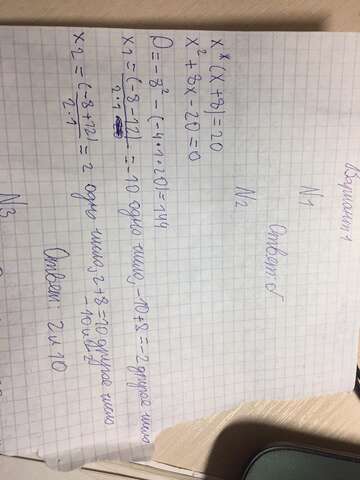 Вариант 1
N1
Ответ: б
N2
x*(x+8)=20
x²+8x-20=0
D=-8²-(-4·1·20)=144
x1=(-8-12)/2·1=-10 одно число, -10+8=-2 другое число
x2=(-8+12)/2·1=2 одно число, 2+8=10 другое число
-10 и 2
Ответ: 2 и 10
N3